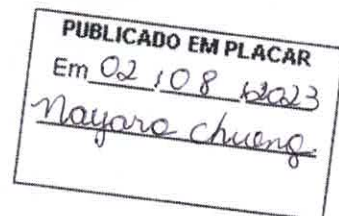 PUBLICADO EM PLACAR
Em 02 / 08 / 2023
Nayara Chueng.